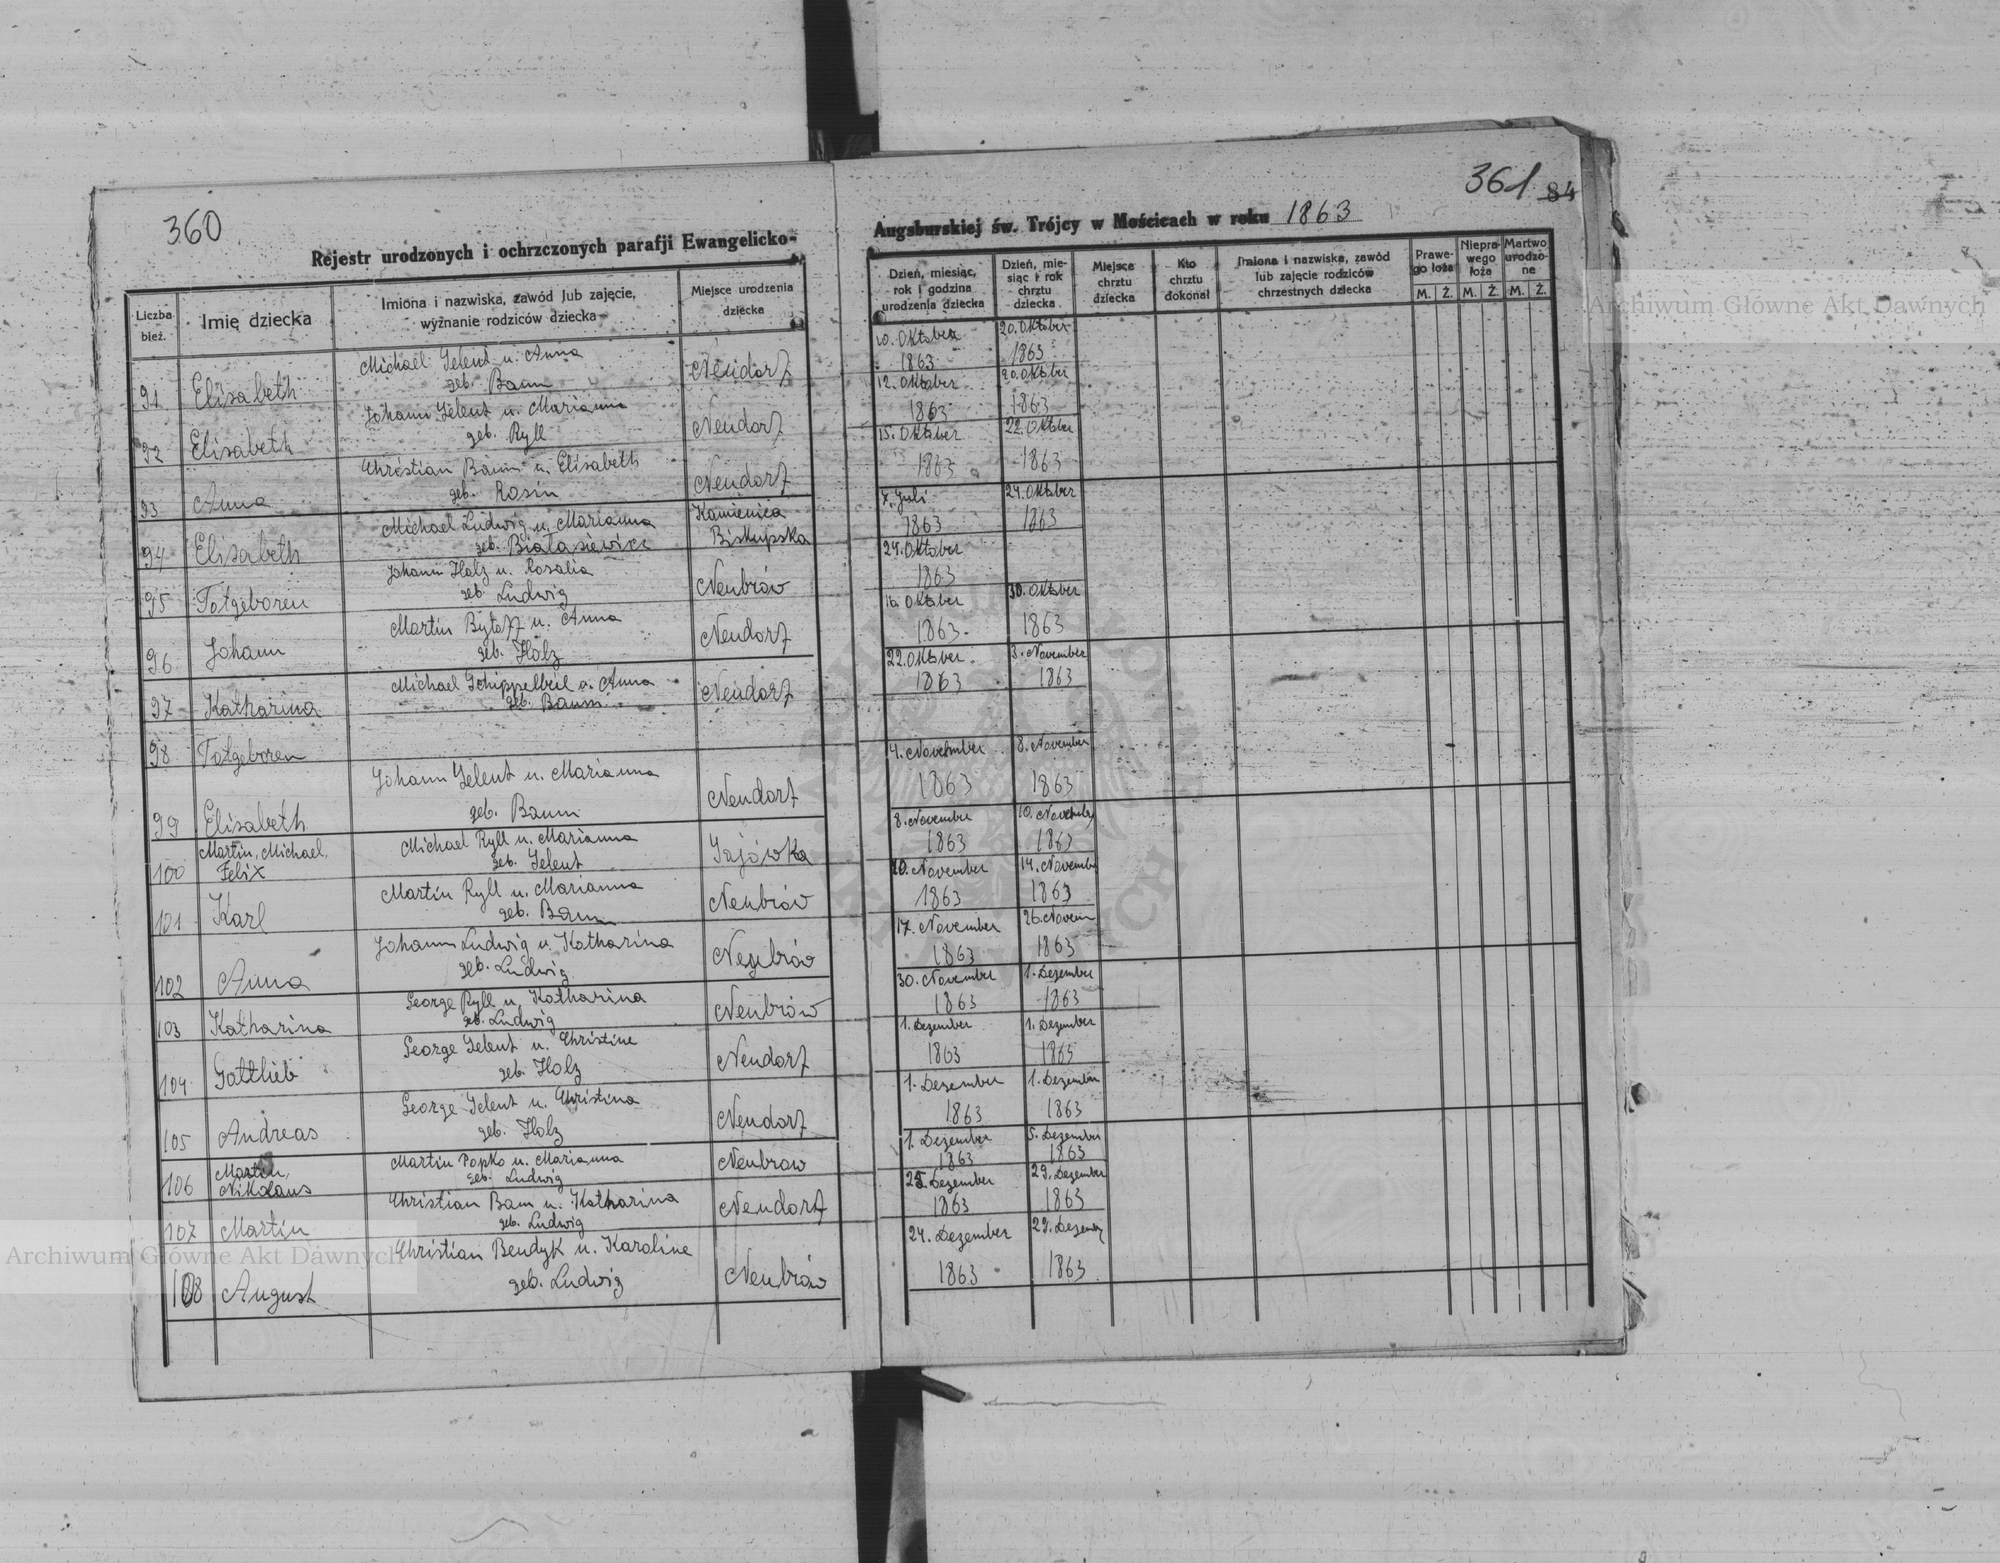 360
Rejestr urodzonych i ochrzczonych parafji Ewangelicko-
Liczba bież.
Imię dziecka
Imiona i nazwiska, zawód lub zajęcie, wyznanie rodziców dziecka
Miejsce urodzenia dziecka
91 Elisabeth Michael Gelent u. Anna geb. Baum Neudorf
92 Elisabeth Johann Gelent u. Marianna geb. Ryll Neudorf
93 Anna Christian Baum u. Elisabeth geb. Rosin Neudorf
94 Elisabeth Michael Ludwig u. Marianna geb. Białasiewicz Kamienica Biskupska
95 Totgeboren Johann Holz u. Rosalia geb. Ludwig Neubrów
96 Johann Martin Bytoff u. Anna geb. Holz Neudorf
97 Katharina Michael Schippelbeil u. Anna geb. Baum Neudorf
98 Totgeboren
99 Elisabeth Johann Gelent u. Marianna geb. Baum Neudorf
100 Martin, Michael, Felix Michael Ryll u. Marianna geb. Gelent Gajówka
101 Karl Martin Ryll u. Marianna geb. Baum Neubrów
102 Anna Johann Ludwig u. Katharina geb. Ludwig Neubrów
103 Katharina George Ryll u. Katharina geb. Ludwig Neubrów
104 Gottlieb George Gelent u. Christine geb. Holz Neudorf
105 Andreas George Gelent u. Christina geb. Holz Neudorf
106 Martin, Nikolaus Martin Popko u. Marianna geb. Ludwig Neubrow
107 Martin Christian Baum u. Katharina geb. Ludwig Neudorf
108 August Christian Bendyk u. Karoline geb. Ludwig Neubrów
361 84
Augsburskiej św. Trójcy w Mościcach w roku 1863
Dzień, miesiąc, rok i godzina urodzenia dziecka
Dzień, miesiąc i rok chrztu dziecka
Miejsce chrztu dziecka
Kto chrztu dokonał
Imiona i nazwiska, zawód lub zajęcie rodziców chrzestnych dziecka
Prawego łoża
Nieprawego łoża
Martwo urodzone
M. Ż. M. Ż. M. Ż.
10. Oktober 1863 20. Oktober 1863
12. Oktober 1863 20. Oktober 1863
15. Oktober 1863 22. Oktober 1863
7. Juli 1863 24. Oktober 1863
24. Oktober 1863
16. Oktober 1863 30. Oktober 1863
22. Oktober 1863 3. November 1863
4. November 1863 8. November 1863
8. November 1863 10. November 1863
10. November 1863 14. November 1863
17. November 1863 26. Novem 1863
30. November 1863 1. Dezember 1863
1. Dezember 1863 1. Dezember 1863
1. Dezember 1863 1. Dezember 1863
1. Dezember 1863 5. Dezember 1863
25. Dezember 1863 29. Dezember 1863
24. Dezember 1863 29. Dezember 1863
Archiwum Główne Akt Dawnych
Archiwum Główne Akt Dawnych